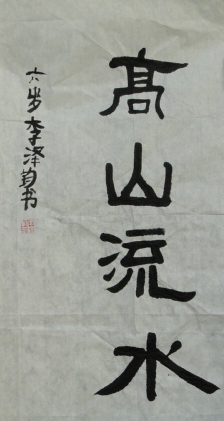 髙山流水
六岁李泽均书